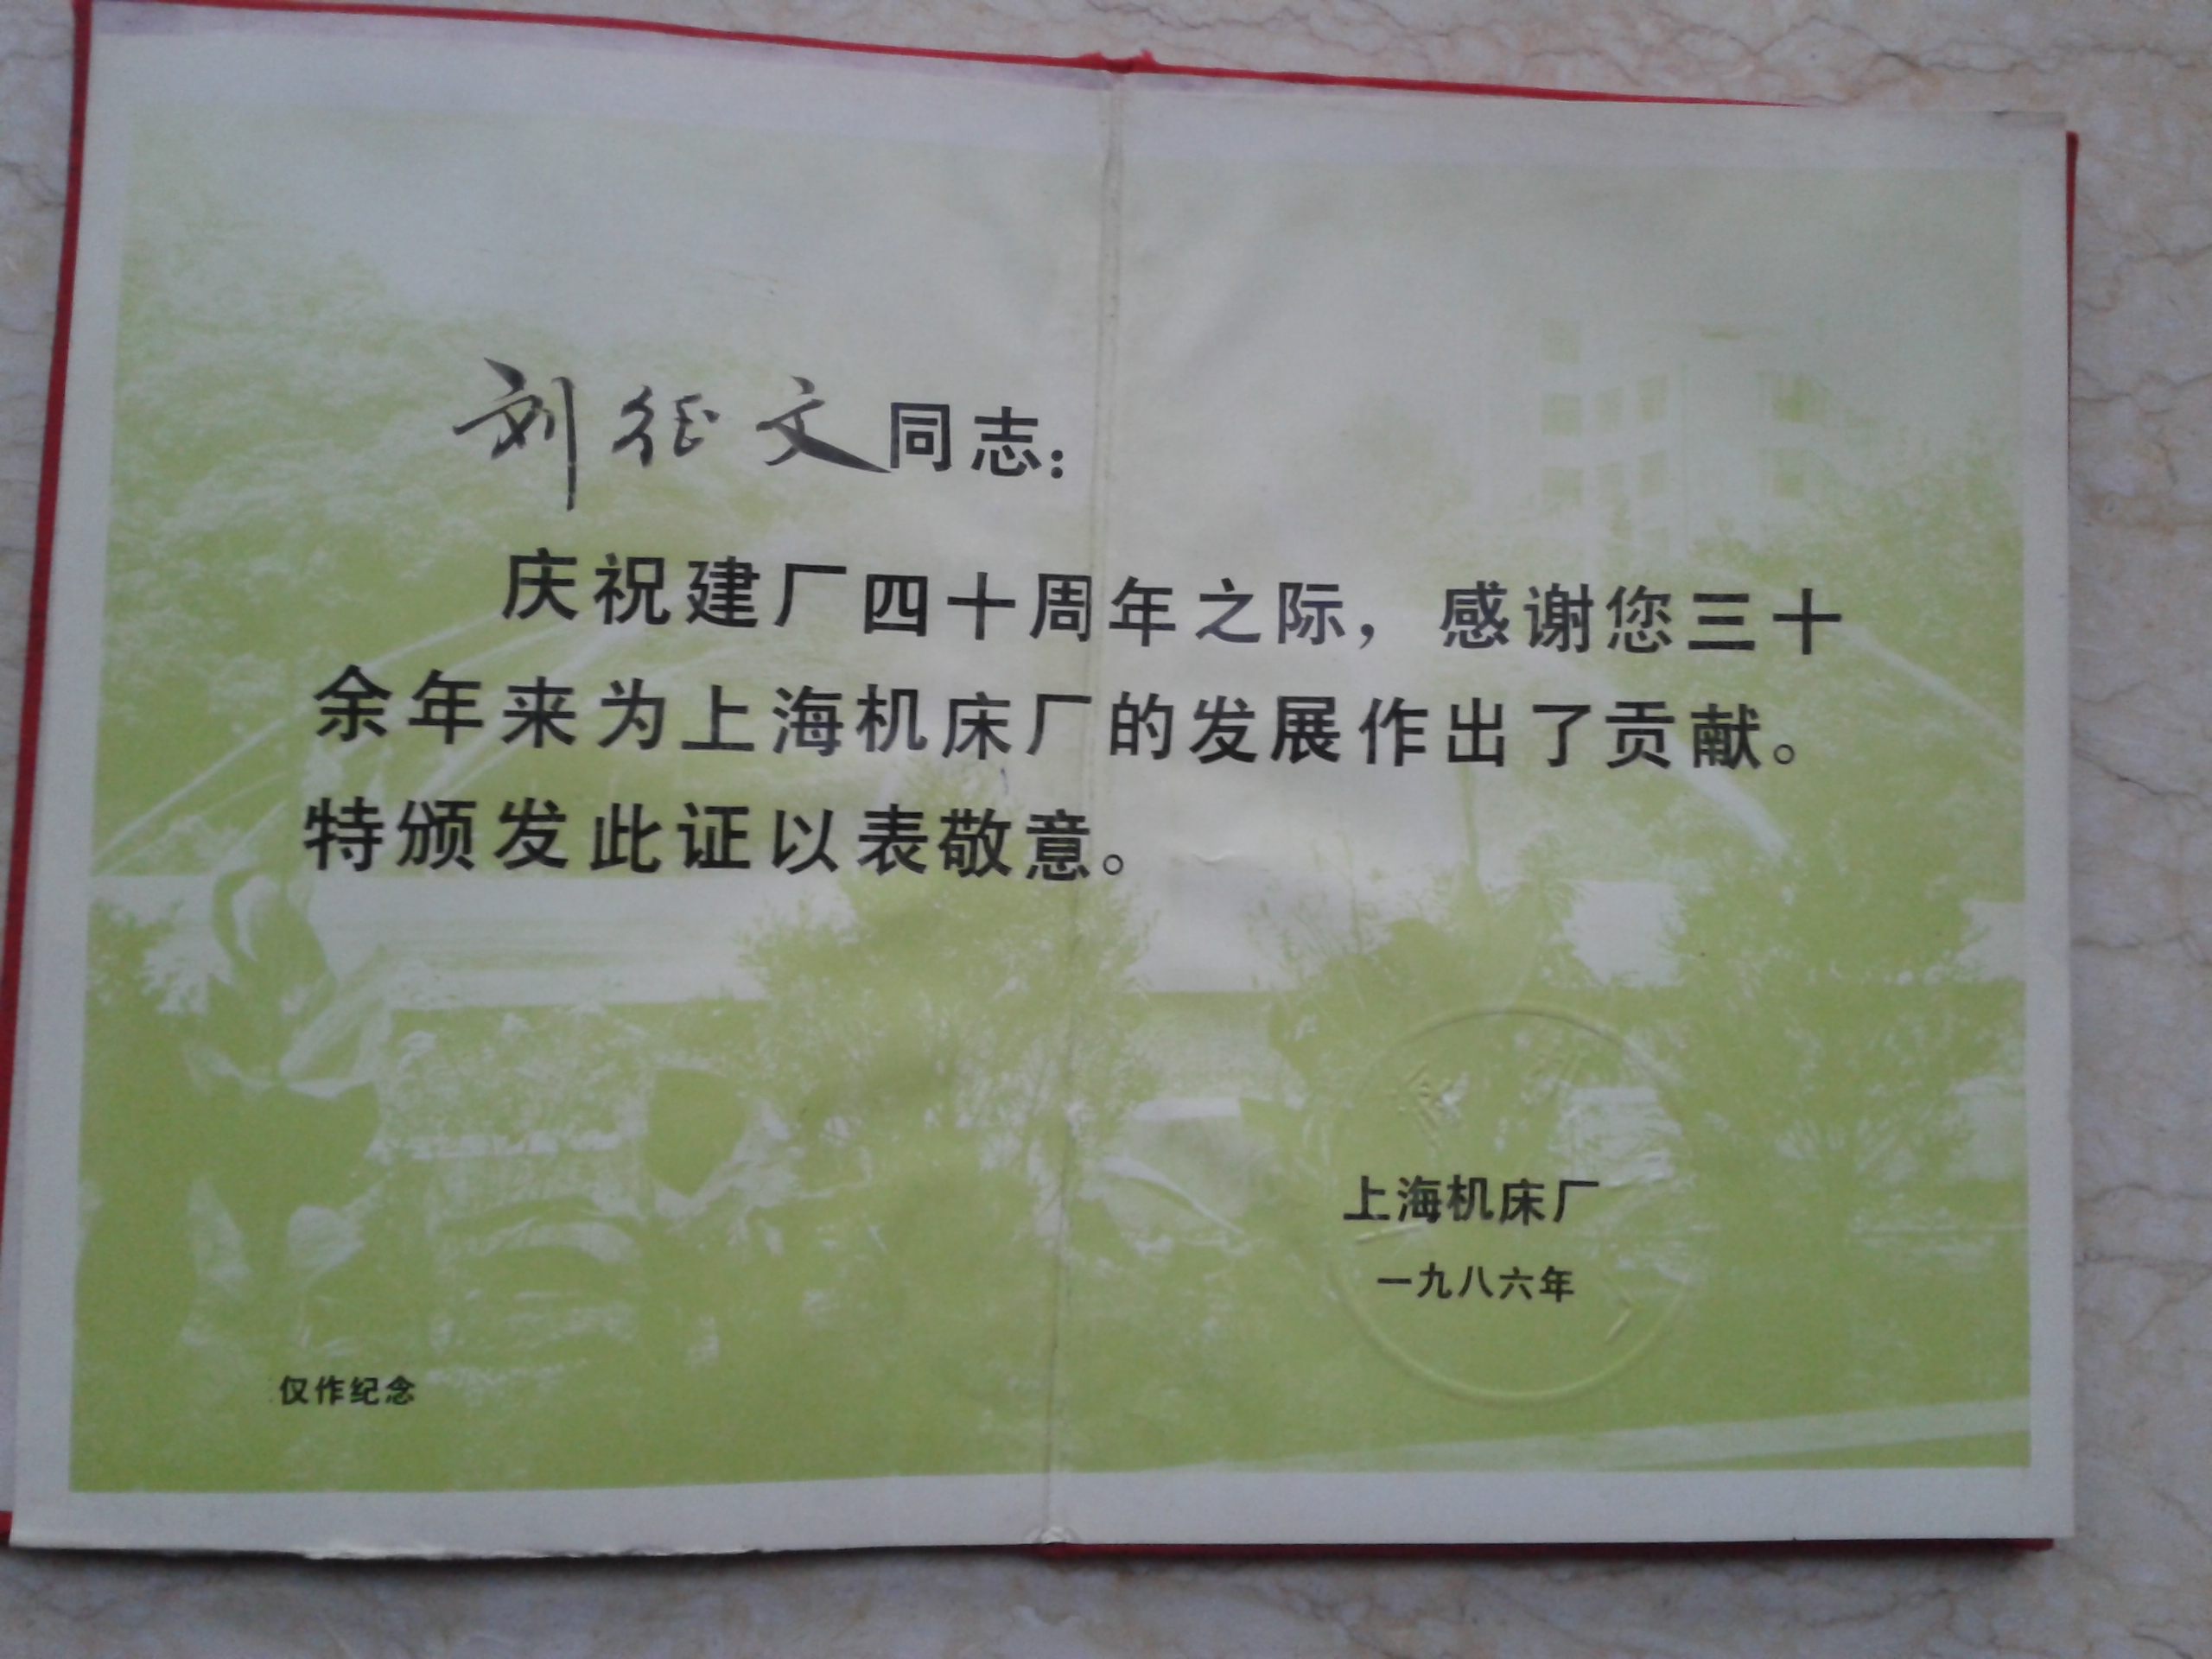 刘征文同志：
庆祝建厂四十周年之际，感谢您三十
余年来为上海机床厂的发展作出了贡献。
特颁发此证以表敬意。
上海机床厂
一九八六年
仅作纪念